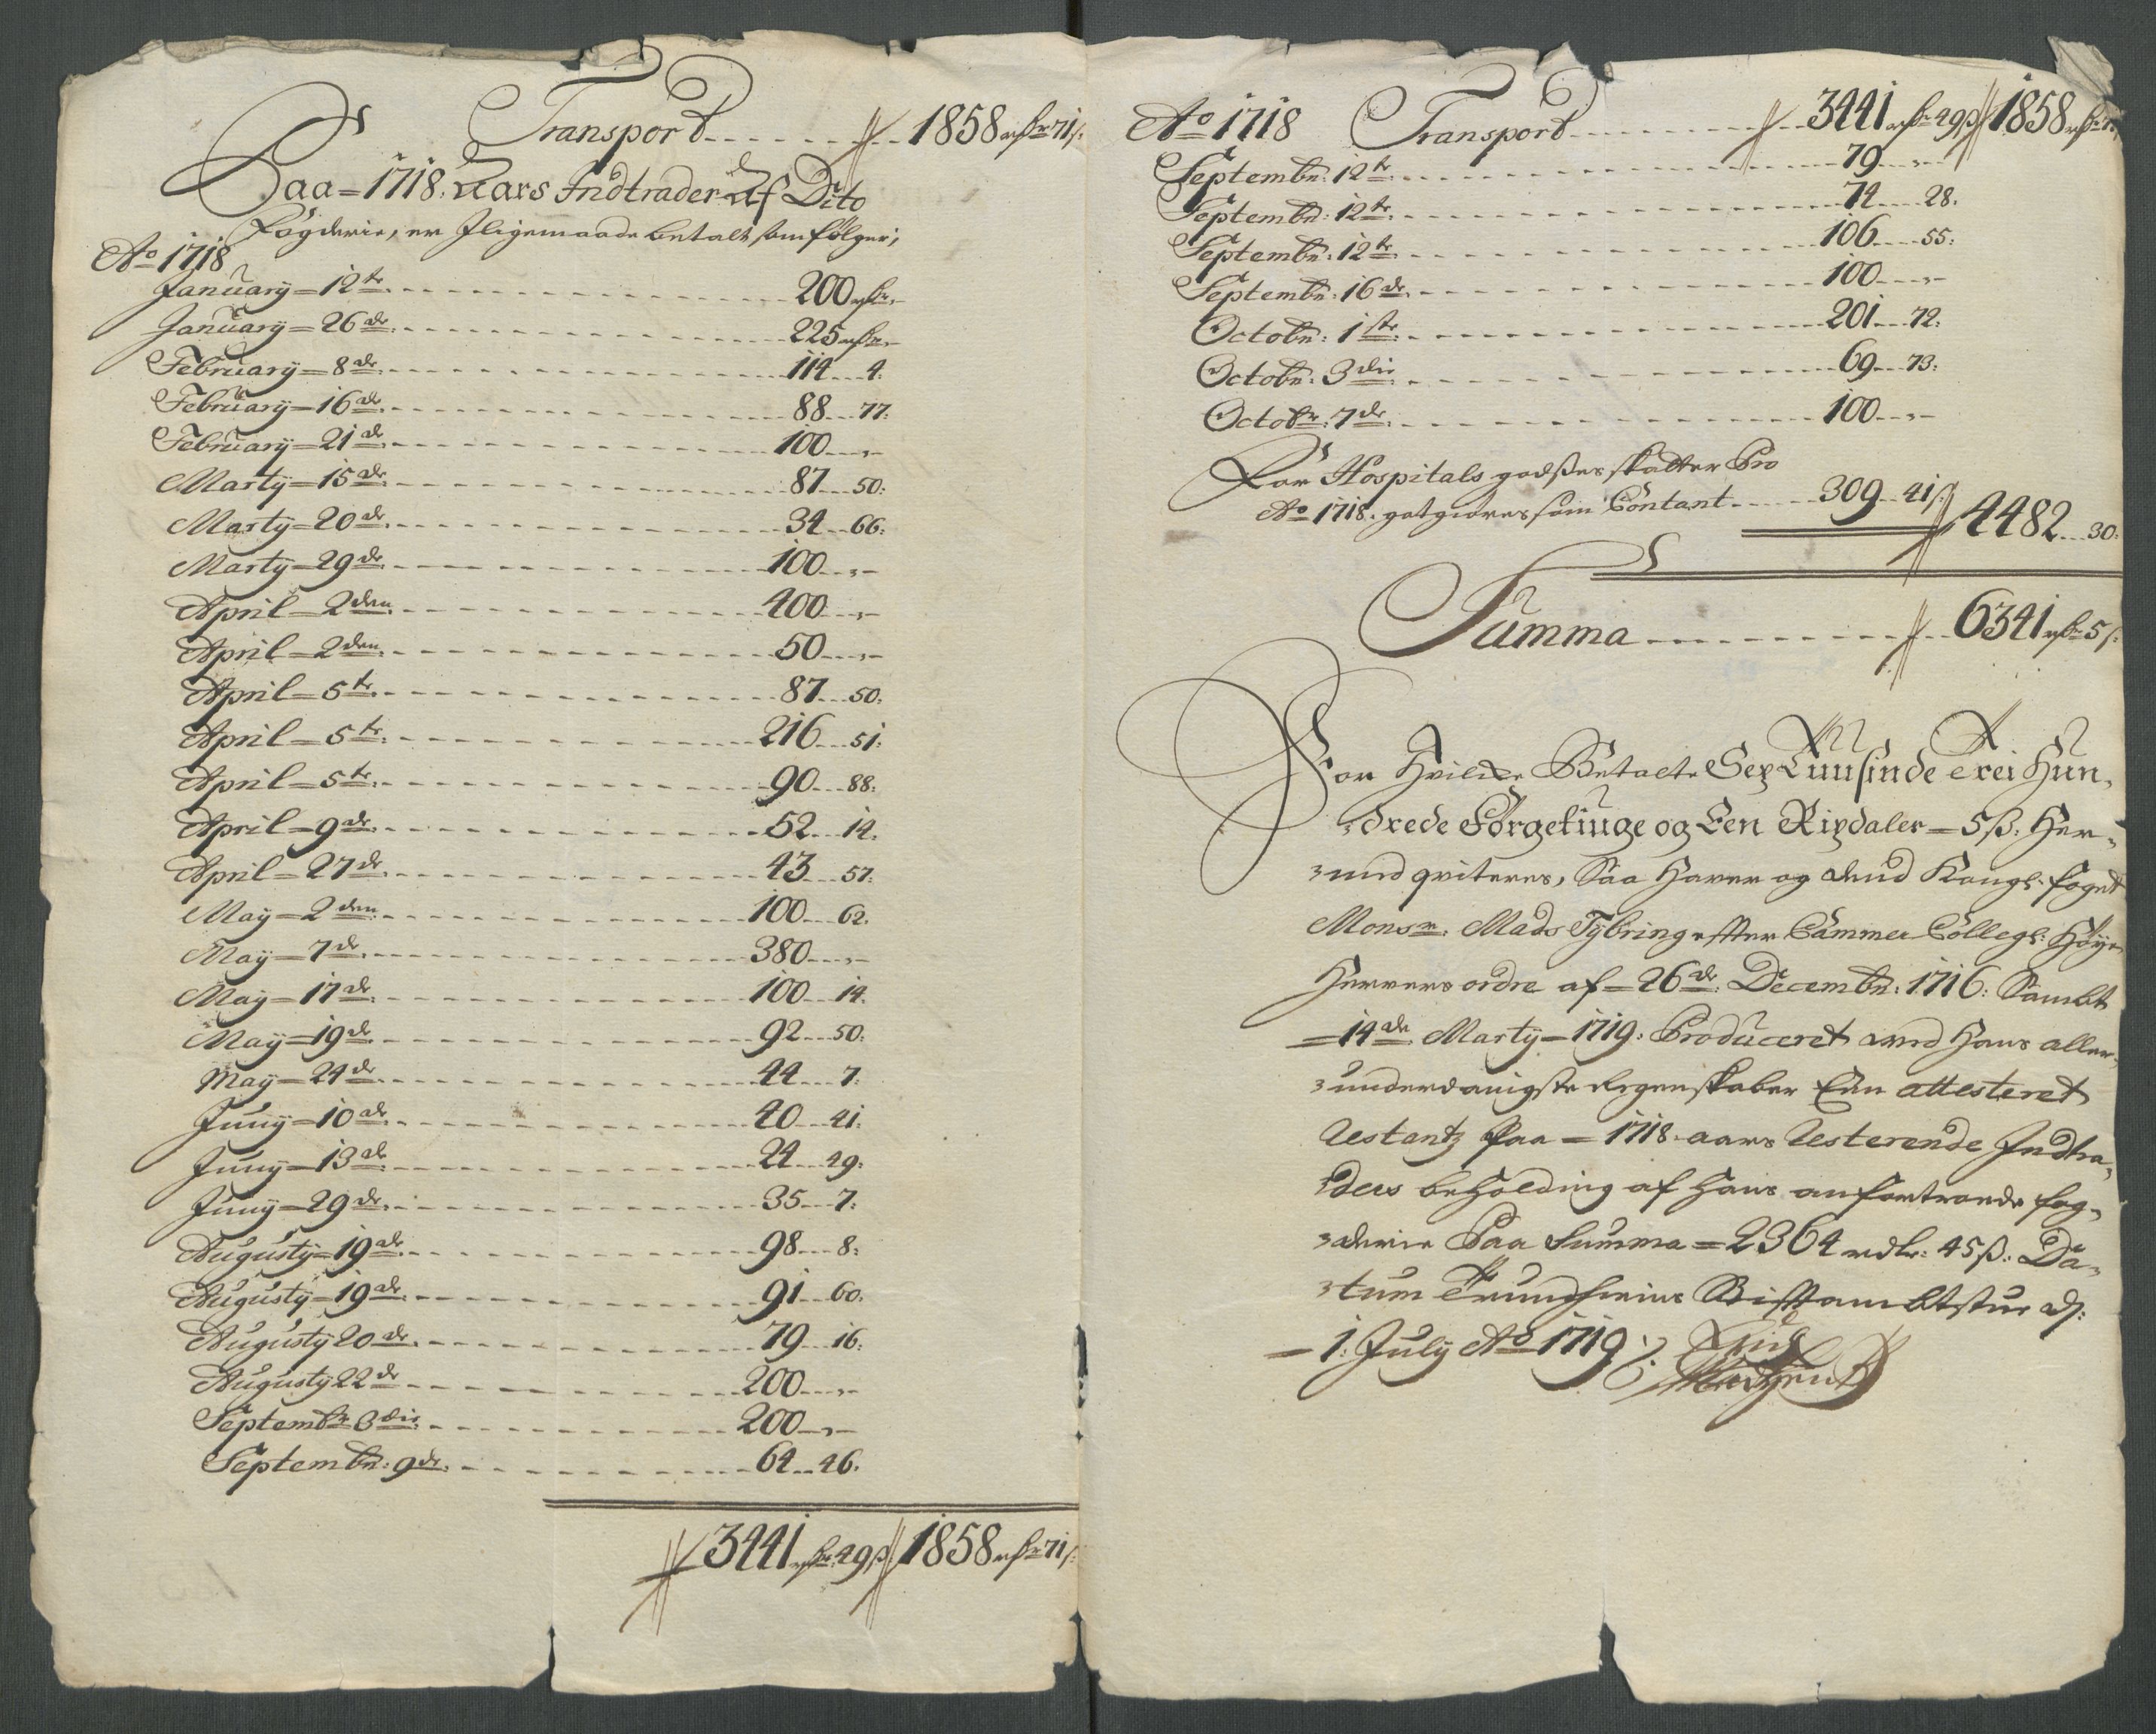 Transport - - - - - - 1858 rdr 71 s:
Paa = 1718. Aars Indtrader Af Dito
Fögderie, er Iligemaade betalt som følger;
Ao 1718
January = 12te - - - 200 rdr -
January = 26de - - - 225 rdr -
February = 8de - - - 114 - 4.
February = 16de - - - 88 - 77.
February = 21de - - - 100 - „ -
Marty = 15de - - - 87 - 50:
Marty = 20de - - - 34 - 66.
Marty = 29de - - - 100 - „ -
April = 2den - - - 400 - „ -
April = 2den - - - 50 - „ -
April = 5te - - - 87 - 50.
April = 5te - - - 216 - 51.
April = 5te - - - 90 - 88:
April = 9de - - - 52 - 14.
April = 27de - - - 43 - 57.
May = 2den - - - 100 - 62.
May = 7de - - - 380 - „ -
May = 17de - - - 100 - 14.
May = 19de - - - 92 - 50.
May = 24de - - - 44 - 7.
Juny = 10de - - - 40 - 41.
Juny = 13de - - - 24 - 49:
Juny = 29de - - - 35 - 7:
Augusty = 19de - - - 98 - 8:
Augusty = 19de - - - 91 - 60.
Augusty 20de - - - 79 - 16:
Augusty 22de - - - 200 - „ -
Septembr 3die - - - 200 - „ -
Septembr: 9de - - - 64 - 46.
3441 rdr 49 ß 1858 rdr 71 s:
Ao 1718 Transport - - - 3441 rdr 49 ß 1858 rdr
Septembr: 12te - - - 79 - „ -
Septembr: 12te - - - 74 - 28.
Septembr: 12te - - - 106 - 55:
Septembr: 16de - - - 100 - „ -
Octobr: 1ste - - - 201 - 72:
Octobr: 3die - - - 69 - 73:
Octobr: 7de - - - 100 - „ -
For Hospitals godßes skatter Pro
Ao 1718. gotgiøres som Contant - - 309 - 41 ß 4482 - 30:
Summa - - - - - - 6341 rdr 5 s:
For Hvilcke Betalte Sex Tuusinde Trei Hun,
drede Førgetiuge og Een Rixdaler = 5 ß: Her-
med qviteres, Saa Haver og dend Kongl: foget
Monsr. Mads Tybring effter Cammer Collegl: Höye
Herrers ordre af = 26de: Decembr: 1716: Sambt
= 14de Marty = 1719: Produceret med Hans aller-
underdanigste Regenskaber Een attesteret
Restantz Paa = 1718 aars Resterende Indtra,
ders beholding af Hans anfortroede fog,
derie Paa Summa = 2364 rdlr: 45 ß: Da,
tum Trundheims Stifftambtstue d:
= 1: July Ao 1719 ./.